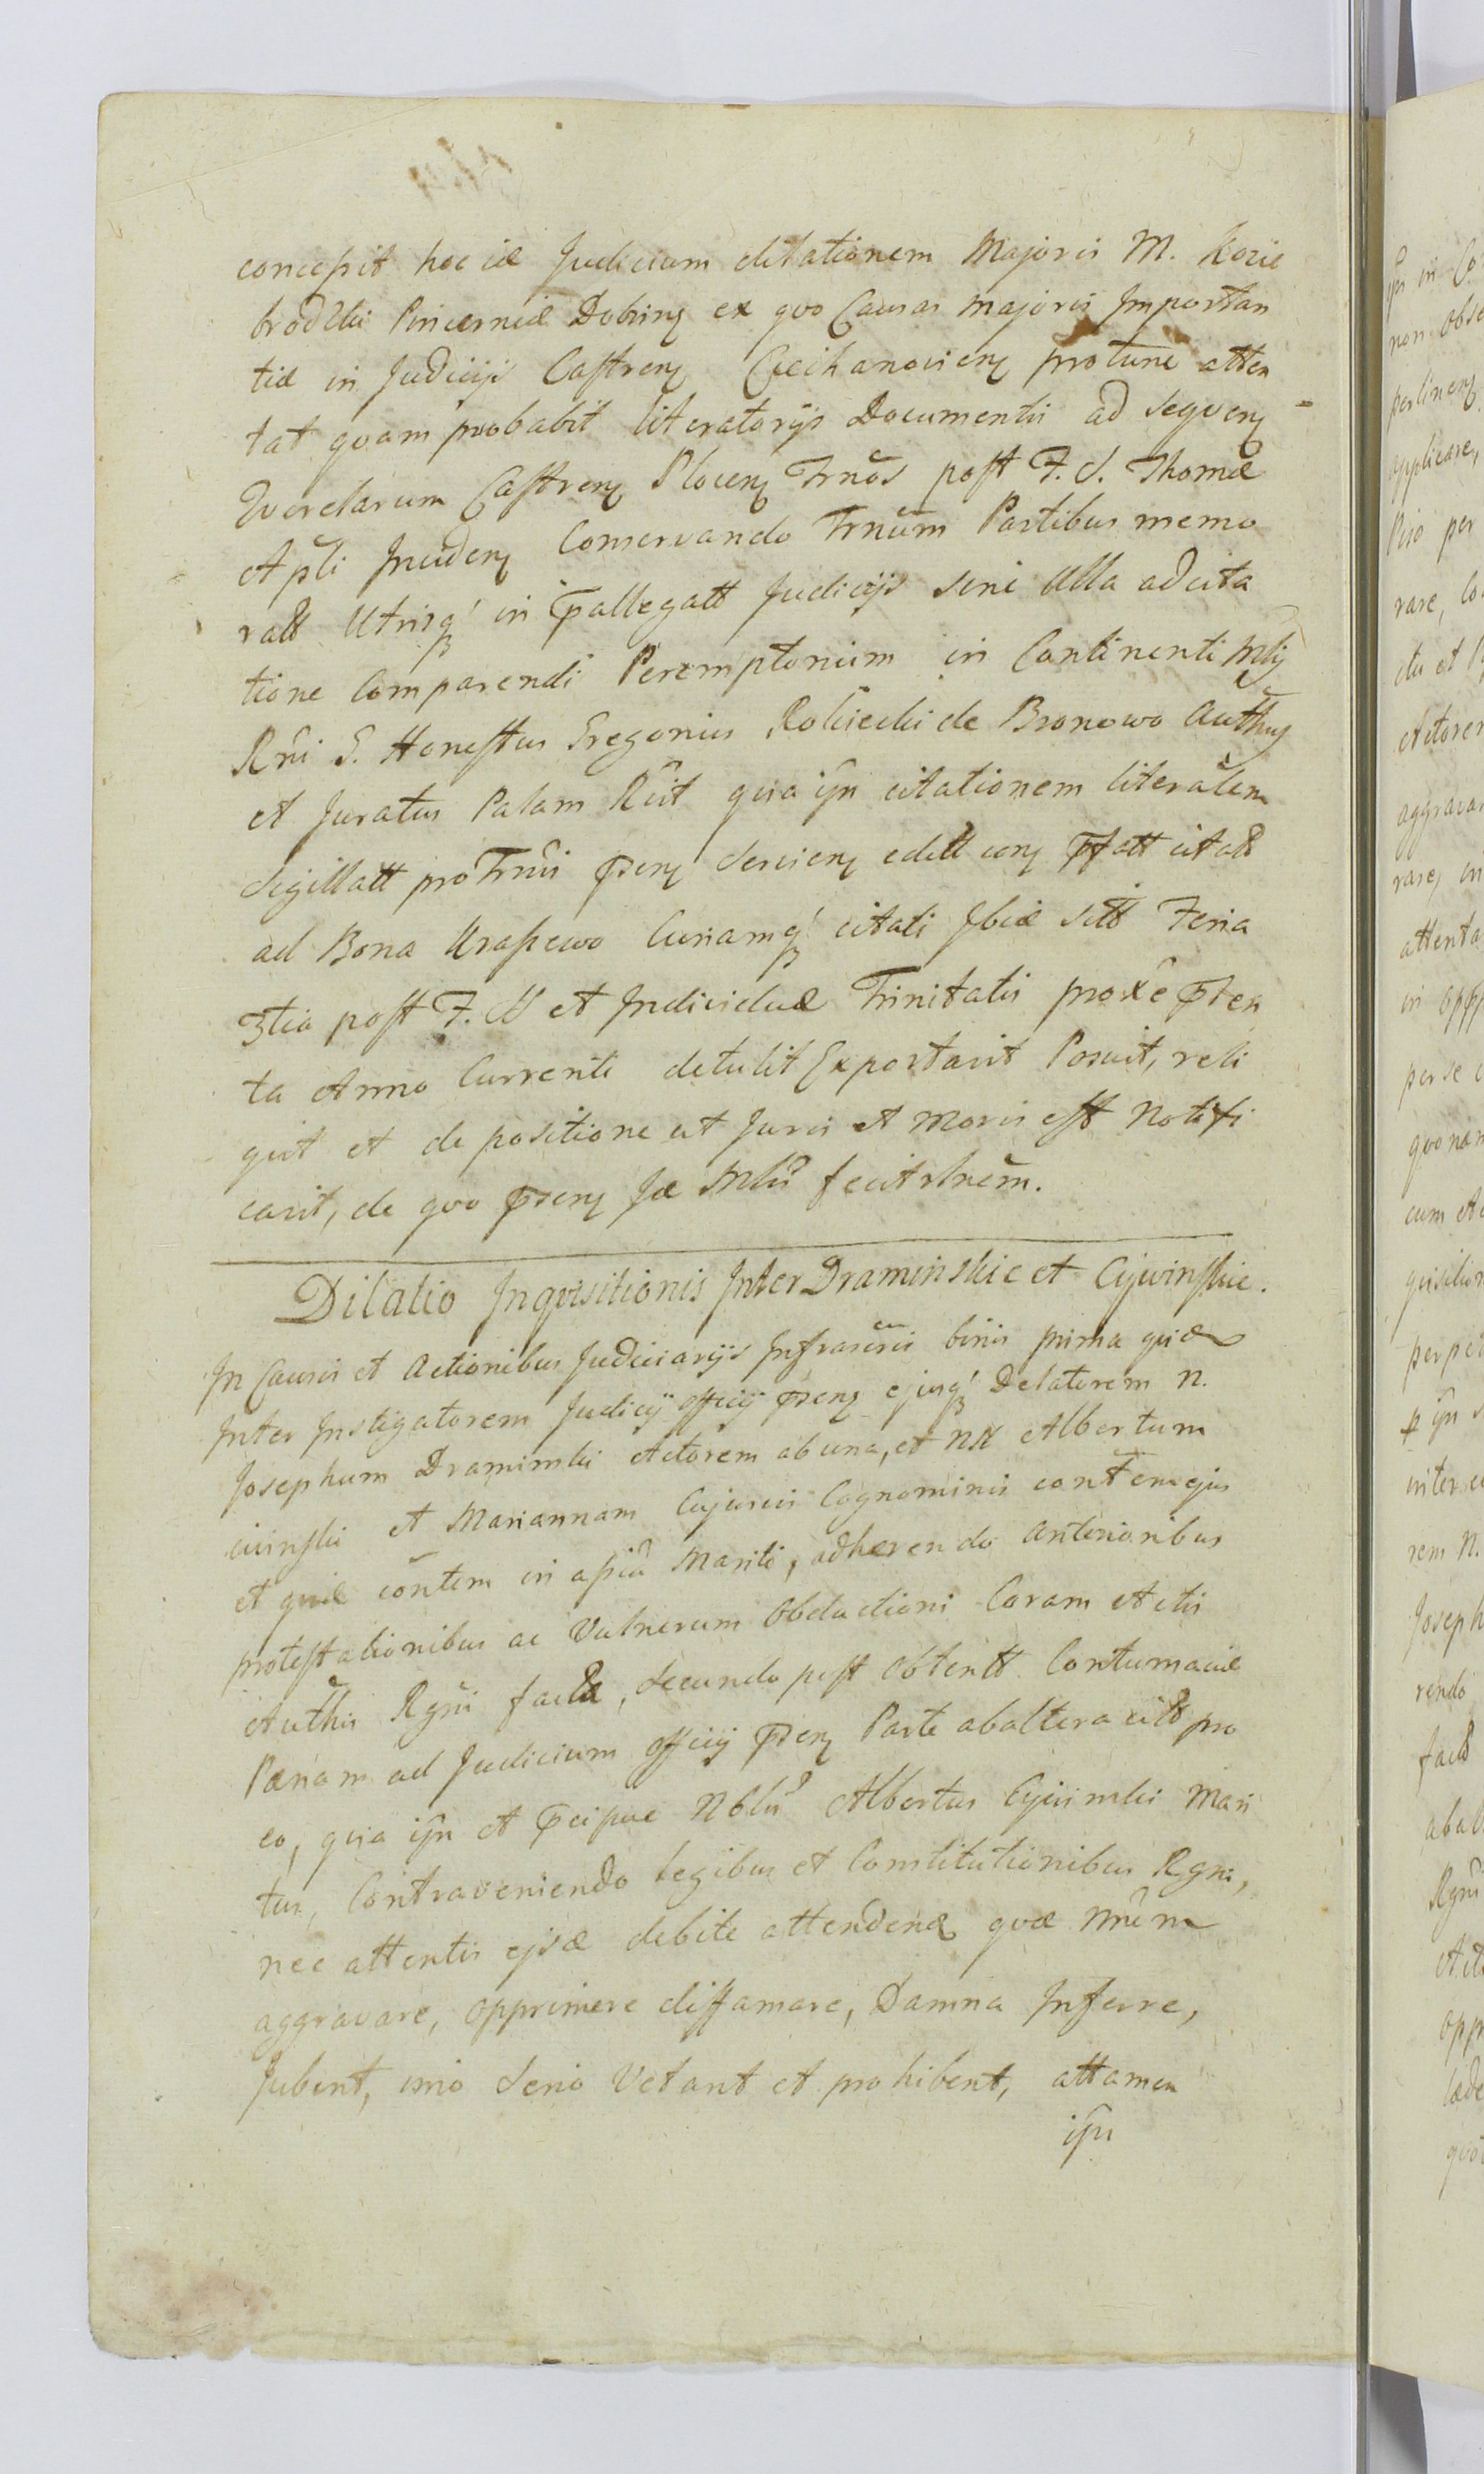 concessit hocce Judicium dilationem Majoris M. Kozie
brodzki Pincernæ Dobrinen ex quo Causas majoris Importan
tiæ in Judicijs Castren Ciechanovien protunc atten
tat quam probabit literatorijs Documentis ad sequen
Querelarum Castren Plocen Trnos post F. S. Thomæ
Apli Inciden Conservando Trnum Partibus memo
ratt Utrisq in pallegatt Judicijs sine Ulla adcita
tione Comparendi Peremptorium in Continenti Mlij
Rni S. Honestus Gregorius Rokicki de Bronowo Authen
et Juratus Palam Rcit quia ipn citationem literalem
Sigillatt pro Trnis psen Servien edett con pfatt citatt
ad Bona Krassewo Curiamq citati Ibiæ sitt Feria
3tia post F. SS et Individuæ Trinitatis proxe pteri
ta Anno Currenti detulit Exportavit Posuit, reli
quit et de positione ut Juris et moris est Notifi
cavit, de quo psen Jæ Mlis fecit rlnem.
Dilatio Inqvisitionis Inter Draminskie et Cywinskie.
In Causis et Actionibus Judiciarijs Infrascriis binis prima quidem
Inter Instigatorem Judicij officij psen ejusq Delatorem N.
Josephum Draminski Actorem ab una, et NN Albertum
Ciwinski et Mariannam Cujusvis Cognominis contem ejus
et quidem contem in assia Mariti, adhærendo anterioribus
protestationibus ac Vulnerum Obductioni Coram Actis
Authis Rgni factæ, Secunda post Obtentt Contumaciæ
Pænam ad Judicium officij psen Parte ab altera citt pro
eo, quia ipn et pcipue Nblis Albertus Cywinski Mari
tus, Contraveniendo Legibus et Constitutionibus Rgni,
nec attentis ejsd debite attenden quæ nmem
aggravare, opprimere diffamare, Damna Inferre,
Jubent, imo Serio Vetant et prohibent, attamen
ipn